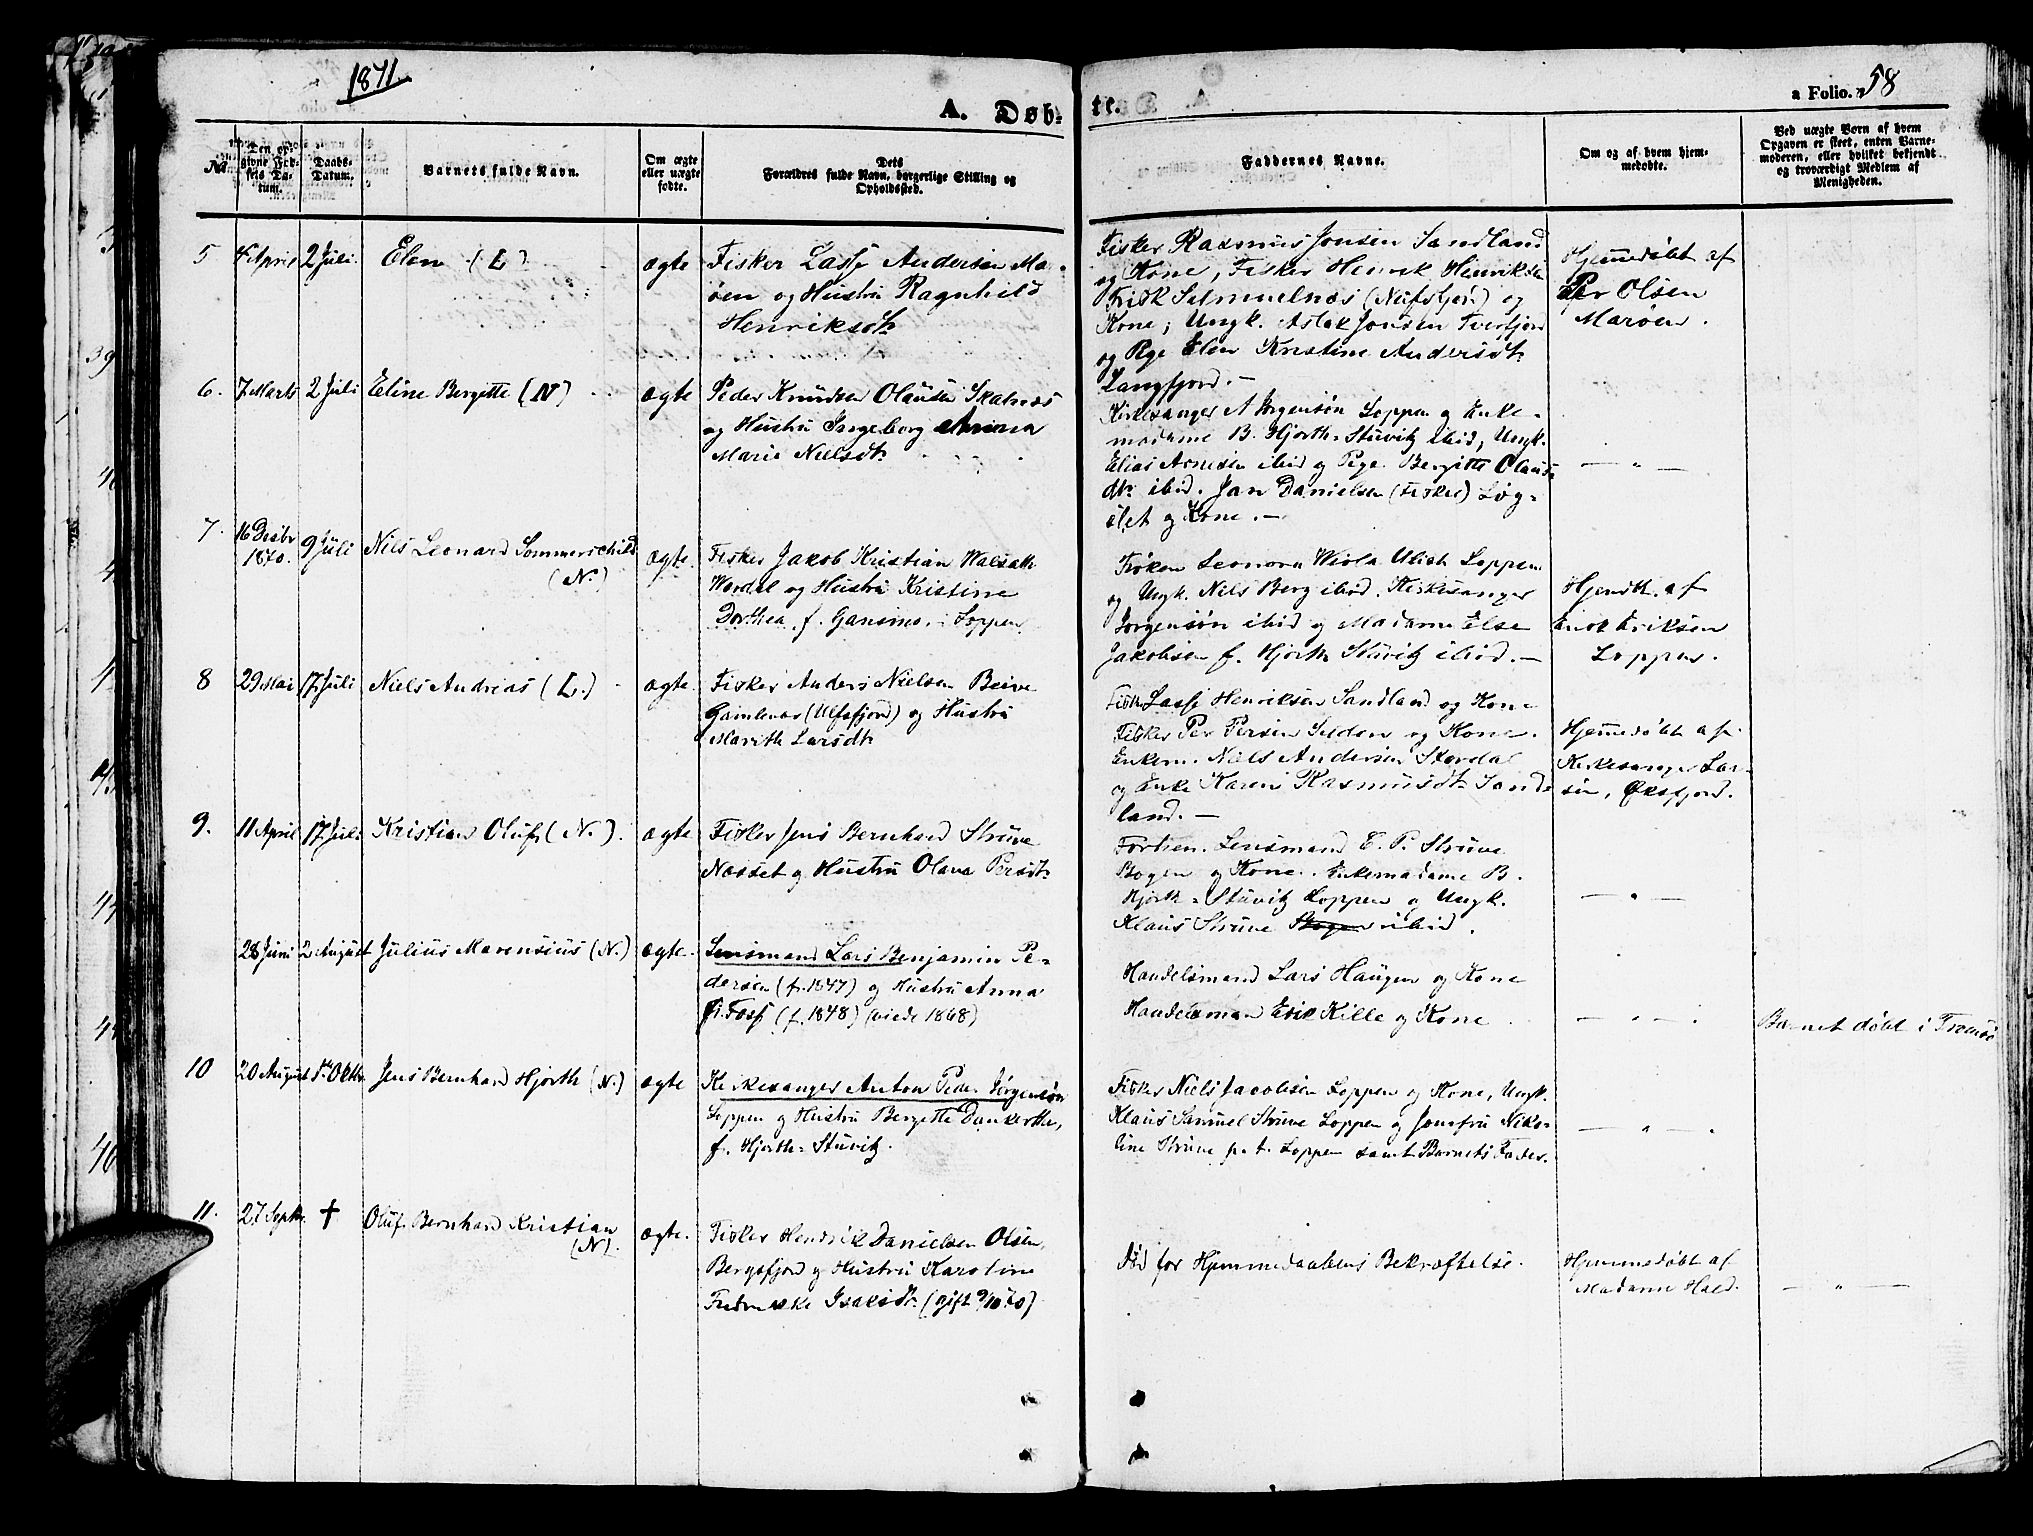 1871
A. Døb-
te.
a Folio. 58
No
Den op-
givne Fød-
sels Da-
tum.
Daabs-
Datum.
Barnets fulde Navn.
Om ægte
eller uægte
fødte.
Dets
Forældres fulde Navn, borgerlige Stilling og
Opholdssted.
Faddernes Navne.
Om og af hvem hjem-
medøbte.
Ved uægte Børn af hvem
Opgaven er skeet, enten Barne-
moderen, eller hvilket bekjendt
og troværdigt Medlem af
Menigheden.
5 4 April 2 Juli Elen (L) ægte
Fisker Lasse Andersen Ma-
røen og Hustru Ragnhild
Henriksdt
Fisker Rasmus Jonsen Sandland
og Kone, Fisker Henrik Henriksen
Kone; Ungk. Aslak Jonsen Tverfjord
og Pige Elen Kristine Andersdt
Langfjord.-
Hjemmedøbt af
Per Olsen
Marøen.
6. 7 Marts 2 Juli Eline Bergitte (N) ægte
Peder Knudsen Olausen Skalnes
og Hustru Ingeborg Anna
Marie Nielsdt
Kirkesanger A Jørgensøn Loppen og Enke-
madame B. Hjorth-Stuvitz ibid, Ungk.
Elias Arnesen ibid og Pige Bergitte Olaus-
dtr ibid. Jan Danielsen (Fisker) Løg-
slet og Kone.-
— " —
7. 16 Decbr 1870. 9 Juli Niels Leonard Sommerschild
(N.) ægte.
Fisker Jakob Kristian
og Hustru Kristine
Dorthea f. Loppen.
Frøken Leonora Wiola Ulich Loppen
og Ungk. Niels Berg ibid. Kirkesanger
Jørgensøn ibid og Madame Else
Jakobsen f. Hjorth Stuvitz ibid.-
Hjemdt. af
Enok Eriksen
Loppen.
8 29 Mai 17 Juli Niels Andreas (L.) ægte.
Fisker Anders Nielsen
(Ulfsfjord) og Hustru
Marith Larsdt
Fisk. Lasse Henriksen Sandland og Kone
Fisker Per Persen og Kone.
Enkem. Niels Andersen Stordal
og Enke Karen Rasmusdt Sand-
land.-
Hjemmedøbt af
Kirkesanger Lar-
sen, Øksfjord.
9. 11 April 17 Juli Kristian Oluf (N.). ægte
Fisker Jens Bernhard Struve
Næsset og Hustru Olava Persdt
Lensmand E. P. Struve
Bogen og Kone. Enkemadame B.
Hjorth-Stuvitz Loppen og Ungk.
Klaus Struve ibid.
— " —
28 Juni 2 August Julius Marensius (N.) ægte.
Lensmand Lars Benjamin Pe-
dersen (f. 1847) og Hustru Anna
f. Foss (f. 1848) (viede 1868)
Handelsmand Lars Haugen og Kone
Handelsmand Erik Kille og Kone.
— " — .
Barnet døbt i Tromsø
10 20 August Oktbr. Jens Bernhard Hjorth (N.) ægte
Kirkesanger Anton Peder Jørgensøn
Loppen og Hustru Bergette Dankertha,
f. Hjorth-Stuvitz.
Fisker Niels Jacobsen Loppen og Kone, Ungk.
Klaus Samuel Struve Loppen og Jomfru Niko-
line Struve p. t. Loppen samt Barnets Fader.
— " — .
11. 27 Septbr. † Oluf Bernhard Kristian
(N). ægte.
Fisker Hendrik Danielsen Olsen,
Bergsfjord og Hustru Karoline
Fredrikke Isaksdt. (gift 9/10 70)
Død før Hjemmedaabens Bekræftelse.
Hjemmedøbt af
Madame Hald.
— " —